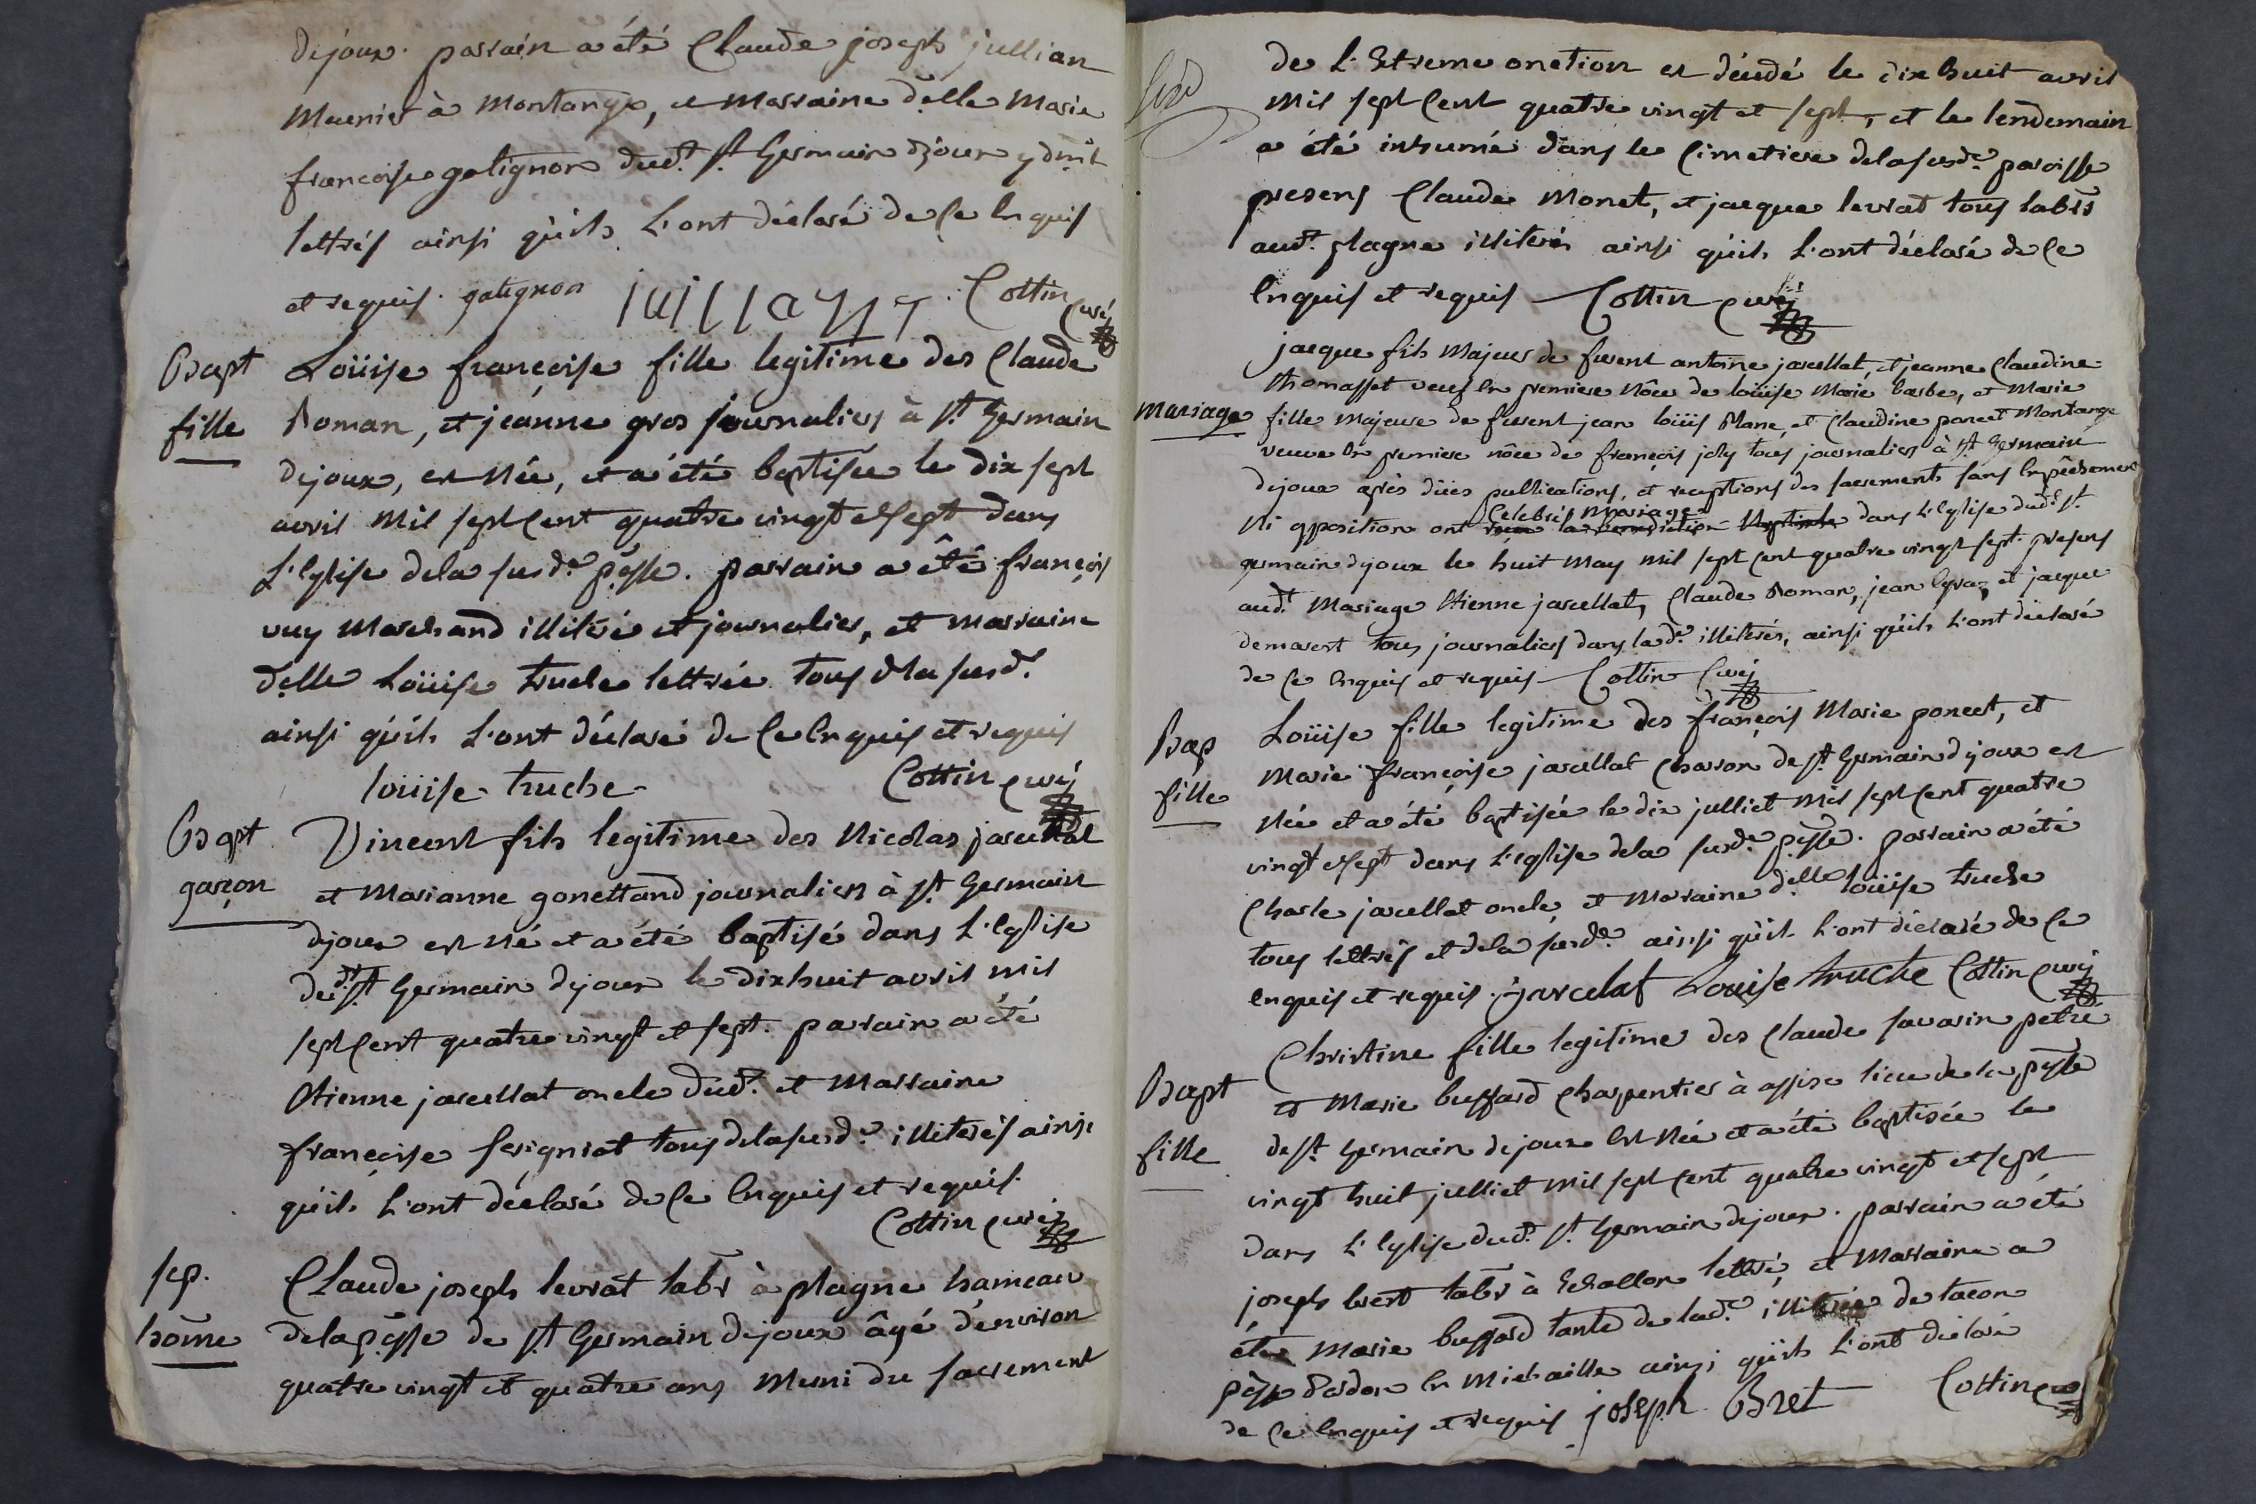 dejoux. parrain a été Claude joseph jullian
Meunier à Montange, et Marraine dlle Marie
françoise galignon dud.t St Germain djoux
lettrés ainsi qu'ils L'ont déclaré de Ce Enquis
et requis. galignon Cottin Curé
Bapt fille
Loüise françoise fille legitime des Claude
Roman, et jeanne gros journaliers à St Germain
dejoux, est Née, et a été baptisée le dix sept
avril Mil sept Cent quatre vingt et sept dans
L'Eglise dela susd.e p̃sse. parrain a été françois
vuy Marchand illiteré et journalier, et Marraine
dlle Loüise truche lettrée tous dla susd.e
ainsi qu'ils L'ont déclaré de Ce Enquis et requis
loüise truche Cottin Curé
Bapt garçon
Vincent fils legitime des Nicolas jarcellat
et Marianne gonettand journaliers à St Germain
djoux est Né et a été baptisé dans L'Eglise
dud.t St Germain djoux le dix huit avril mil
sept Cent quatre vingt et sept. parrain a été
Etienne jarcellat oncle dud.t et Marraine
françoise serignat tous dela susd.e illiterés ainsi
qu'ils L'ont déclaré de Ce Enquis et requis.
Cottin Curé
sep. hom̃e
Claude joseph levrat labr à plagne hameau
dela p̃sse de St Germain dejoux âgé d'environ
quatre vingt et quatre ans Muni du sacrement
de L'Extreme onction est décédé le dix huit avril
Mil sept Cent quatre vingt et sept, et le lendemain
a été inhumé dans le Cimetiere dela susd.e paroisse
presens Claude Monet, et jacque levrat tous labrs
aud.t plagne illiterés ainsi qu'ils L'ont déclaré de Ce
Enquis et requis Cottin Curé
Mariage
jacque fils Majeur de furent antoine jarcellat, et jeanne Claudine
thomasset veuf En premiere Nôce de loüise Marie barbe, et Marie
fille Majeure de furent jean loüis Mane, et Claudine poncet Montange
veuve En premiere nôce de françois joly tous journaliers à St Germain
dejoux après dües publications, et receptions des sacrements sans Empêchement
Celebré Mariage
Ni opposition ont dans L'Eglise dud.t St
germain djoux le huit May mil sept Cent quatre vingt sept. presens
aud.t Mariage Etienne jarcellat, Claude Roman, jean Egraz, et jacque
demarest tous journaliers dans lad.e illiterés, ainsi qu'ils L'ont déclaré
de Ce Enquis et requis Cottin Curé
Bap fille
Loüise fille legitime des françois Marie poncet, et
Marie françoise jarcellat Charon de St Germain djoux est
Née et a été baptisée le dix julliet Mil sept Cent quatre
vingt et sept dans L'eglise dela susd.e p̃sse. parrain a été
Charle jarcellat oncle, et Marraine dlle loüise truche
tous lettrés et dela susd.e ainsi qu'ils L'ont déclaré de Ce
Enquis et requis. jarcelat Louise truche Cottin Curé
Bapt fille
Christine fille legitime des Claude savarin petré
et Marie buffard Charpentier à lieu de la p̃sse
de St Germain dejoux Est Née et a été baptisée le
vingt huit julliet mil sept Cent quatre vingt et sept
dans L'Eglise dud.t St Germain dejoux. parrain a été
joseph bret labr à Echallon lettré, et Marraine a
été Marie buffard tante de lad.e illiterée de tacon
p̃sse d'ardon En Michaille ainsi qu'ils L'ont déclaré
de Ce Enquis et requis joseph Bret Cottin Curé